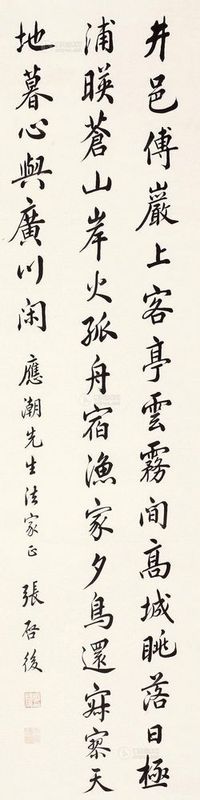 井邑傅巖上客亭雲霧間高城眺落日極
浦暎蒼山岸火孤舟宿漁家夕鳥還寂寥天
地暮心與廣川閑
應潮先生法家正 張啓後